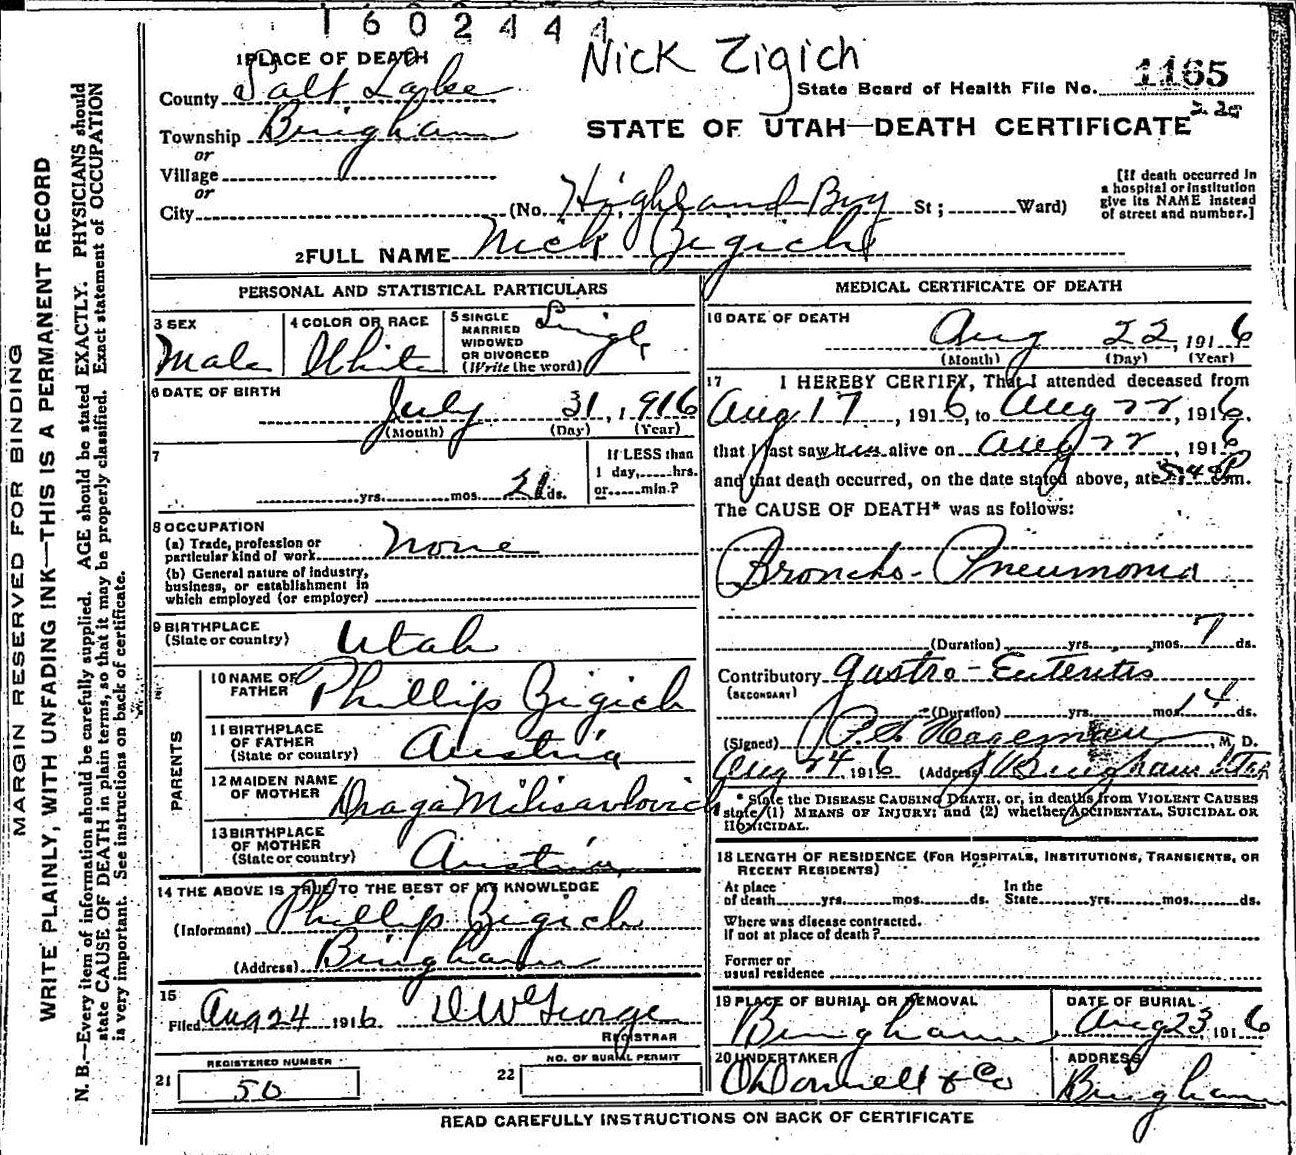 1602444
Nick Zigich
1 PLACE OF DEATH
State Board of Health File No. 1165
County Salt Lake
STATE OF UTAH—DEATH CERTIFICATE
Township Bingham
or
Village
or
City (No. Highland Boy St; Ward)
[If death occurred in
a hospital or institution
give its NAME instead
of street and number.]
2 FULL NAME Nick Zigich
PERSONAL AND STATISTICAL PARTICULARS
3 SEX
Male
4 COLOR OR RACE
White
5 SINGLE
MARRIED
WIDOWED
OR DIVORCED
(Write the word)
Single
6 DATE OF BIRTH
July 31, 1916
(Month) (Day) (Year)
7
yrs. mos. 21 ds.
If LESS than
1 day, hrs.
or min.?
8 OCCUPATION
(a) Trade, profession or
particular kind of work None
(b) General nature of industry,
business, or establishment in
which employed (or employer)
9 BIRTHPLACE
(State or country) Utah
PARENTS
10 NAME OF
FATHER Phillip Zigich
11 BIRTHPLACE
OF FATHER
(State or country) Austria
12 MAIDEN NAME
OF MOTHER Draga Milisavlovich
13 BIRTHPLACE
OF MOTHER
(State or country) Austria
14 THE ABOVE IS TRUE TO THE BEST OF MY KNOWLEDGE
(Informant) Phillip Zigich
(Address) Bingham
15
Filed Aug 24 1916 D W George
REGISTRAR
REGISTERED NUMBER
21 50
NO. OF BURIAL PERMIT
22
MEDICAL CERTIFICATE OF DEATH
16 DATE OF DEATH
Aug 22, 1916
(Month) (Day) (Year)
17 I HEREBY CERTIFY, That I attended deceased from
Aug 17, 1916, to Aug 22, 1916.
that I last saw him alive on Aug 22, 1916
and that death occurred, on the date stated above, at P m.
The CAUSE OF DEATH* was as follows:
Broncho-Pneumonia
(Duration) yrs. mos. 7 ds.
Contributory Gastro-Enteritis
(SECONDARY)
(Duration) yrs. mos. 14 ds.
(Signed) Hageman, M. D.
Aug 24 1916 (Address) Bingham Utah
* State the DISEASE CAUSING DEATH, or, in deaths from VIOLENT CAUSES
state (1) MEANS OF INJURY; and (2) whether ACCIDENTAL, SUICIDAL OR
HOMICIDAL.
18 LENGTH OF RESIDENCE (FOR HOSPITALS, INSTITUTIONS, TRANSIENTS, OR
RECENT RESIDENTS)
At place
of death yrs. mos. ds.
In the
State yrs. mos. ds.
Where was disease contracted.
If not at place of death?
Former or
usual residence
19 PLACE OF BURIAL OR REMOVAL
Bingham
DATE OF BURIAL
Aug 23, 1916
20 UNDERTAKER
O'Donnell & Co
ADDRESS
Bingham
READ CAREFULLY INSTRUCTIONS ON BACK OF CERTIFICATE
MARGIN RESERVED FOR BINDING
WRITE PLAINLY, WITH UNFADING INK—THIS IS A PERMANENT RECORD
N. B.—Every item of information should be carefully supplied. AGE should be stated EXACTLY. PHYSICIANS should
state CAUSE OF DEATH in plain terms, so that it may be properly classified. Exact statement of OCCUPATION
is very important. See instructions on back of certificate.